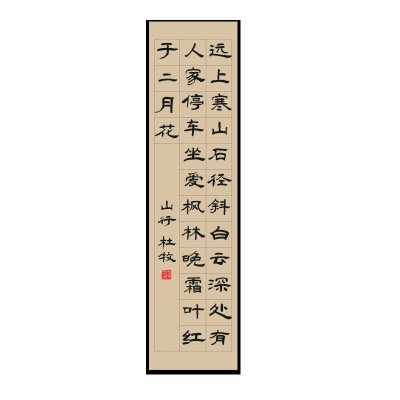 远上寒山石径斜白云深处有
人家停车坐爱枫林晚霜叶红
于二月花
山行 杜牧